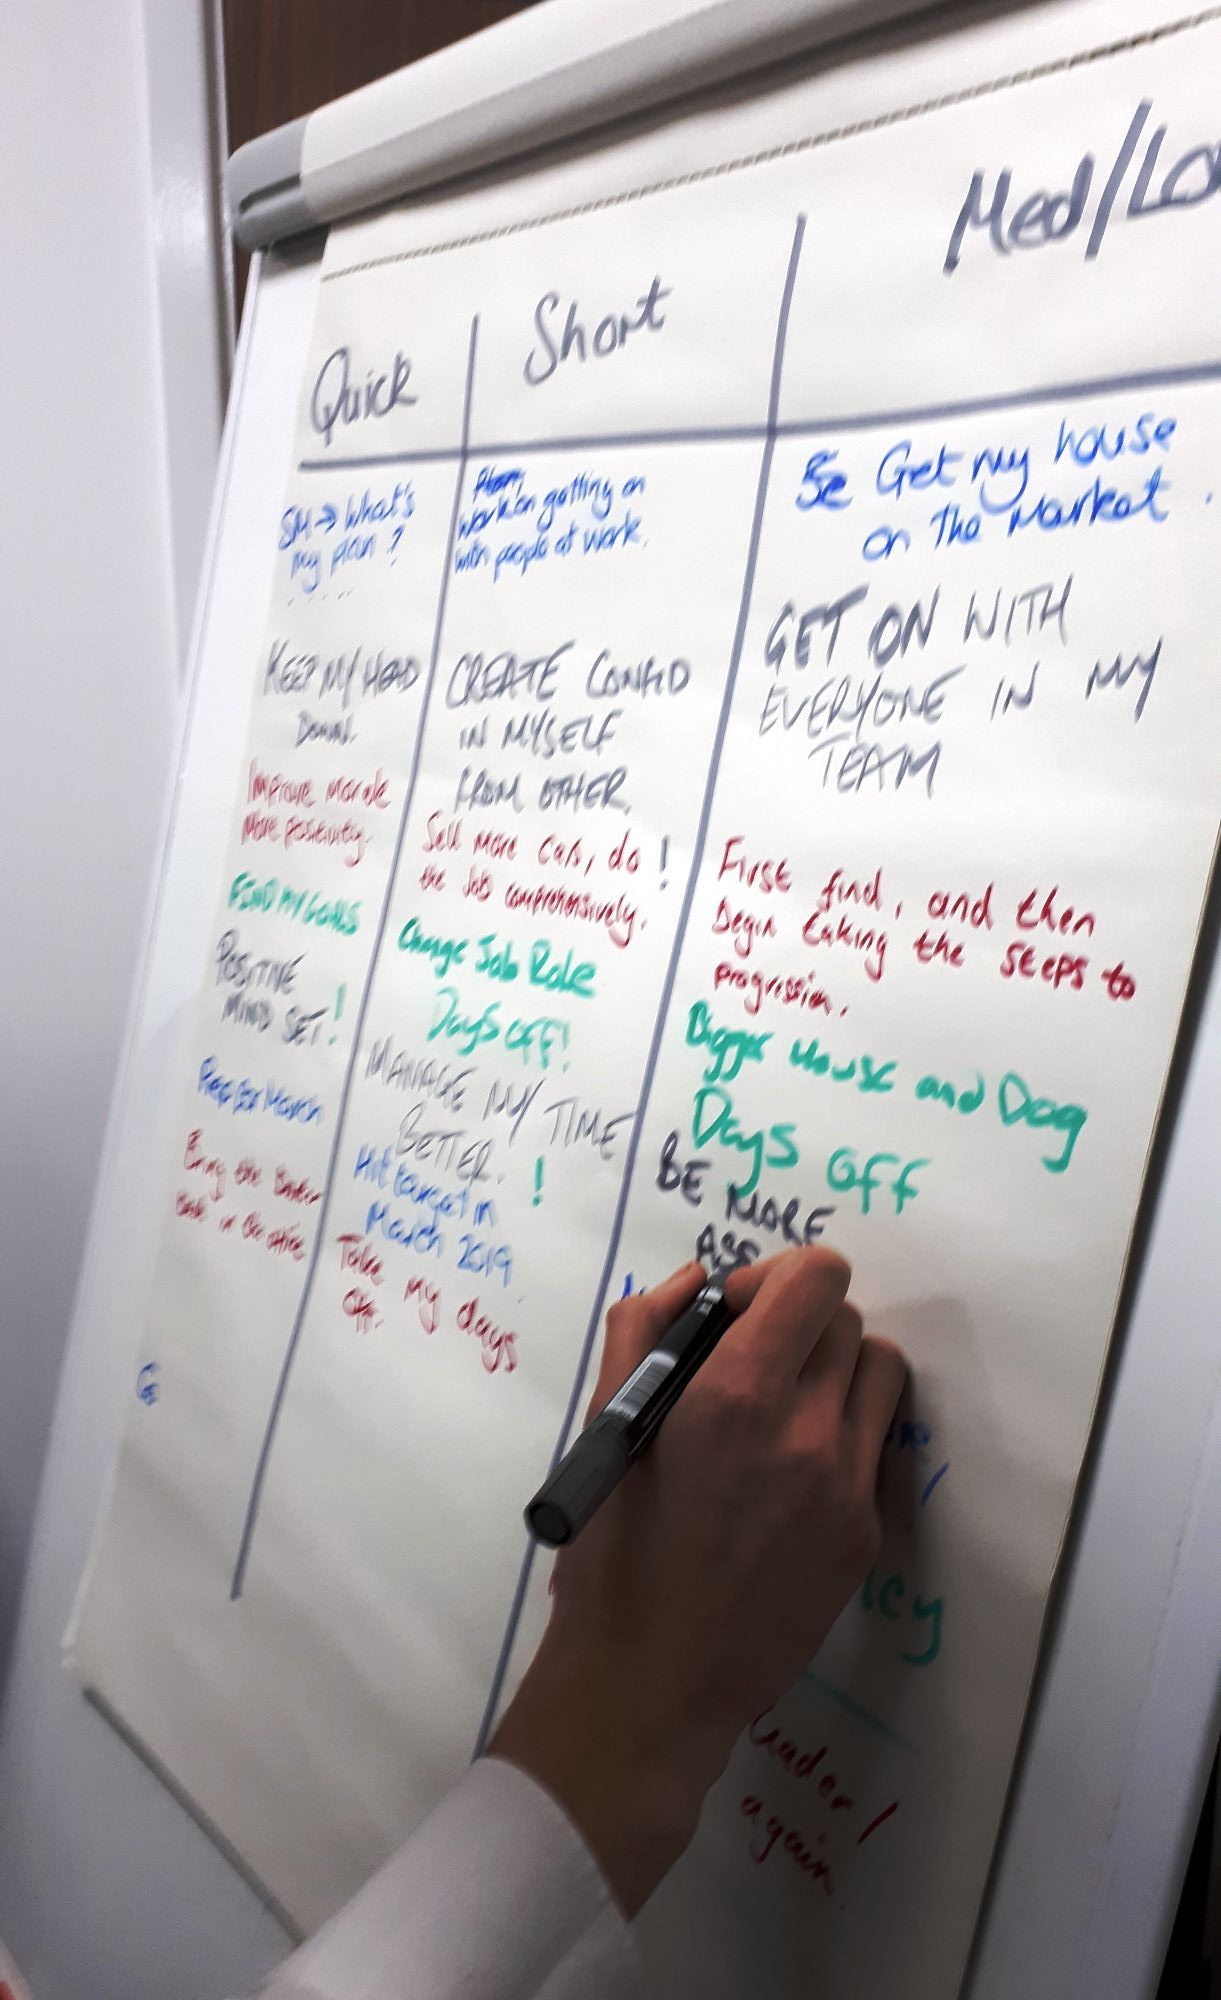 Quick
Short
Med/Lo
SM → What's
my plan ?
KEEP MY HEAD
DOWN.
Improve morale
More positivity.
FIND MY GOALS
POSITIVE
MIND SET!
Prep for March
Bring the banter
back in the office
Work on getting on
with people at work.
CREATE CONFID
IN MYSELF
FROM OTHER.
Sell more cars, do !
the job comprehensively.
Change Job Role
Days off!
MANAGE MY TIME
BETTER.
!
Hit target in
March 2019
Take my days
off.
Be Get my house
on The Market.
GET ON WITH
EVERYONE IN MY
TEAM
First find, and then
begin taking the steps to
progression.
Bigger House and Dog
Days off
BE MORE
icy
Leader /
again.